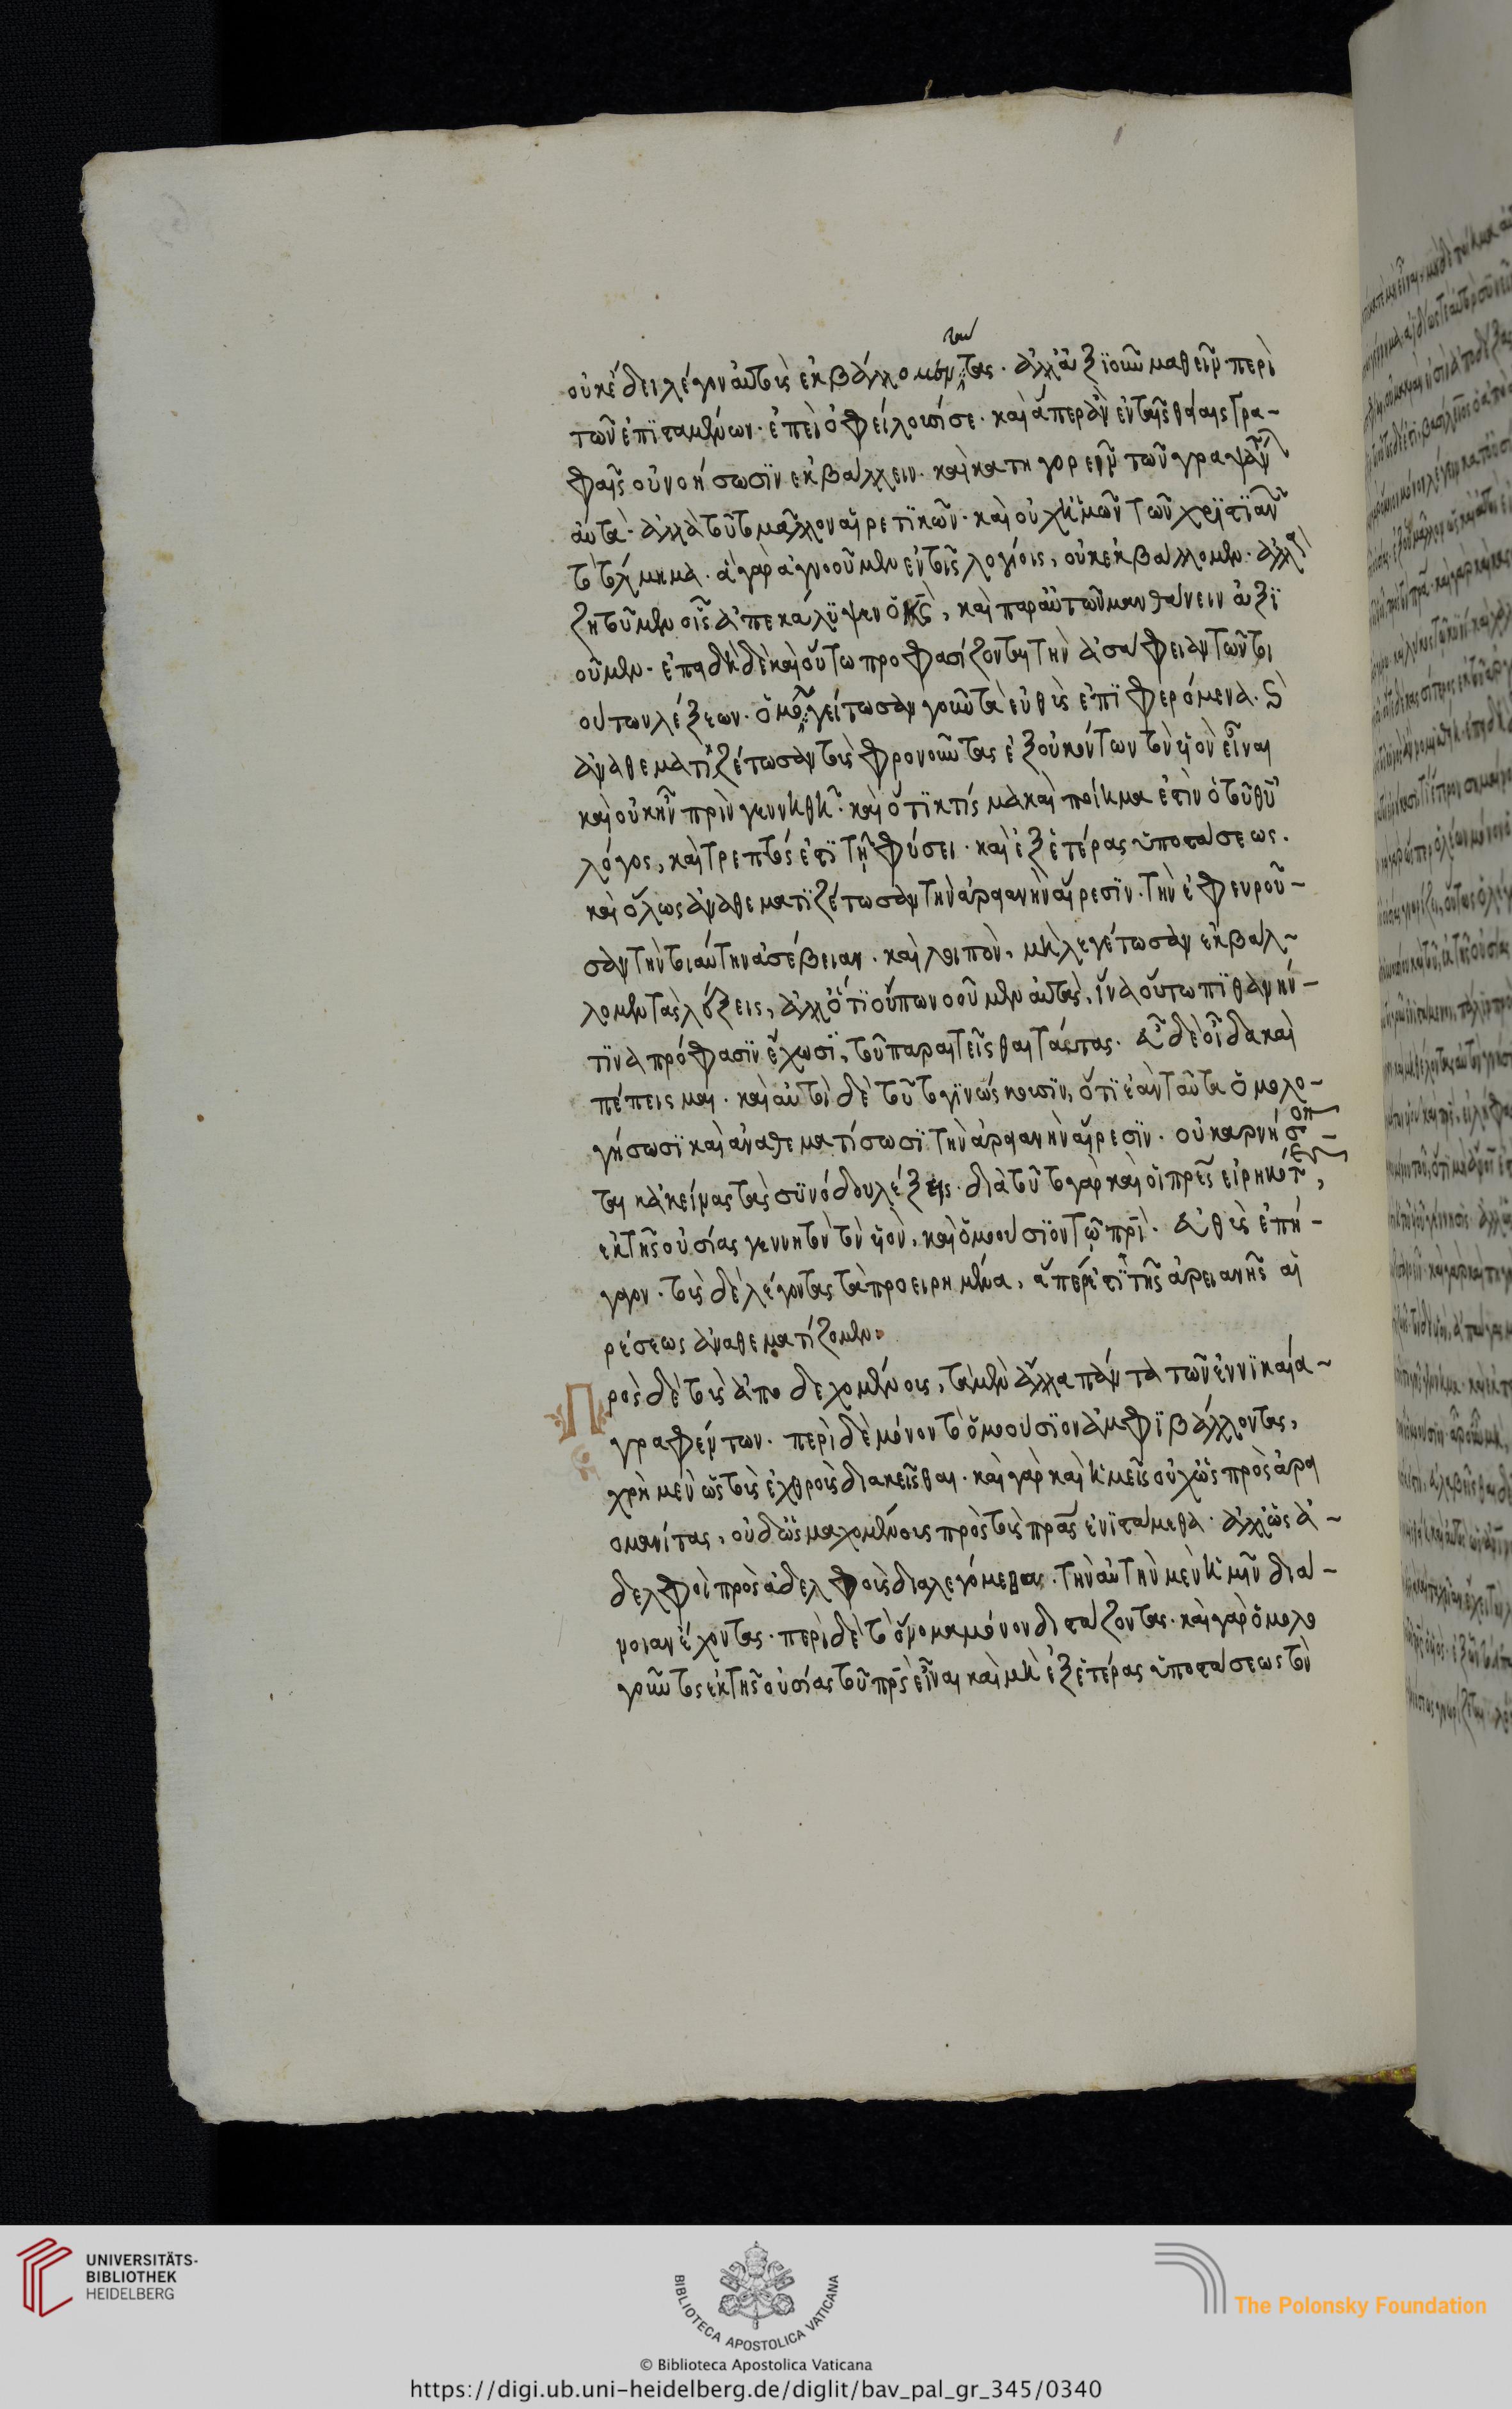 οὐκ ἔδει λέγοντας αὐτοὺς ἐκβάλλομεν τας. ἀλλ' ἀξιοῦμεν μαθεῖν περὶ
τῶν ἐπισταμένων. ἐπεὶ ὀφείλουσί σε. καὶ ἅπερ ἂν ἐν ταῖς θείαις γρα-
φαῖς οὐ νοήσωσιν ἐκβάλλειν. καὶ κατηγορεῖν τῶν γραψάντων
αὐτά. ἀλλὰ τοῦτο μᾶλλον αἱρετικῶν. καὶ οὐχ ἡμῶν τῶν χριστιανῶν
τὸ τόλμημα. ἃ γὰρ ἀγνοοῦμεν ἐν τοῖς λογίοις, οὐκ ἐκβάλλομεν. ἀλλὰ
ζητοῦμεν οἷς ἀπεκάλυψεν ὁ κς, καὶ παρ' αὐτῶν μανθάνειν ἀξι
οῦμεν. ἐπειδὴ δὲ καὶ οὕτω προφασίζονται τὴν ἀσάφειαν τῶν τοι
ούτων λέξεων. ὁμολογείτωσαν γοῦν τὰ εὐθὺς ἐπιφερόμενα. καὶ
ἀναθεματιζέτωσαν τοὺς φρονοῦντας ἐξ οὐκ ὄντων τὸν υἱὸν εἶναι
καὶ οὐκ ἦν πρὶν γεννηθῆ. καὶ ὅτι κτίσμα καὶ ποίημα ἐστὶν ὁ τοῦ θυ
λόγος, καὶ τρεπτός ἐστι τῇ φύσει. καὶ ἐξ ἑτέρας ὑποστάσεως.
καὶ ὅλως ἀναθεματιζέτωσαν τὴν ἀρειανὴν αἵρεσιν. τὴν ἐφευροῦ-
σαν τὴν τοιαύτην ἀσέβειαν. καὶ λοιπὸν, μὴ λεγέτωσαν ἐκβάλ-
λομεν τὰς λέξεις, ἀλλ' ὅτι οὔπω νοοῦμεν αὐτάς, ἵνα οὕτω πιθανήν-
τινα πρόφασιν ἔχωσι, τοῦ παραιτεῖσθαι ταύτας. εὖ δὲ οἶδα καὶ
πέπεισμαι. καὶ αὐτοὶ δὲ τοῦτο γινώσκουσιν, ὅτι ἐὰν ταῦτα ὁμολο-
γήσωσι καὶ ἀναθεματίσωσι τὴν ἀρειανὴν αἵρεσιν. οὐκ ἀρνήσον-
ται κἀκείνας τὰς συνόδου λέξεις. διὰ τοῦτο γὰρ καὶ οἱ πρες εἰρηκότες,
ἐκ τῆς οὐσίας γεννητὸν τὸν υἱὸν. καὶ ὁμοούσιον τῷ πρι. εὐθὺς ἐπή-
γαγον. τοὺς δὲ λέγοντας τὰ προειρημένα, ἅπερ ἐστὶ τῆς ἀρειανῆς αἱ
ρέσεως ἀναθεματίζομεν.
Πρὸς δὲ τοὺς ἀποδεχομένους, τὰ μὲν ἄλλα πάντα τῶν ἐν νικαία-
γραφέντων. περὶ δὲ μόνον τὸ ὁμοούσιον ἀμφιβάλλοντας,
χρὴ μὲν ὡς τοὺς ἐχθροὺς διακεῖσθαι. καὶ γὰρ καὶ ἡμεῖς οὐχ ὡς πρὸς ἀρει
ομανίτας, οὐδ' ὡς μαχομένους πρὸς τοὺς πρας ἐνιστάμεθα. ἀλλ' ὡς ἀ-
δελφοὶ πρὸς ἀδελφοὺς διαλεγόμεθα. τὴν αὐτὴν μὲν ἡμῖν διά-
νοιαν ἔχοντας. περὶ δὲ τὸ ὄνομα μόνον διστάζοντας. καὶ γὰρ ὁμολο
γοῦντες ἐκ τῆς οὐσίας τοῦ πρς εἶναι καὶ μὴ ἐξ ἑτέρας ὑποστάσεως τὸν
UNIVERSITÄTS-
BIBLIOTHEK
HEIDELBERG
BIBLIOTECA APOSTOLICA VATICANA
The Polonsky Foundation
© Biblioteca Apostolica Vaticana
https://digi.ub.uni-heidelberg.de/diglit/bav_pal_gr_345/0340